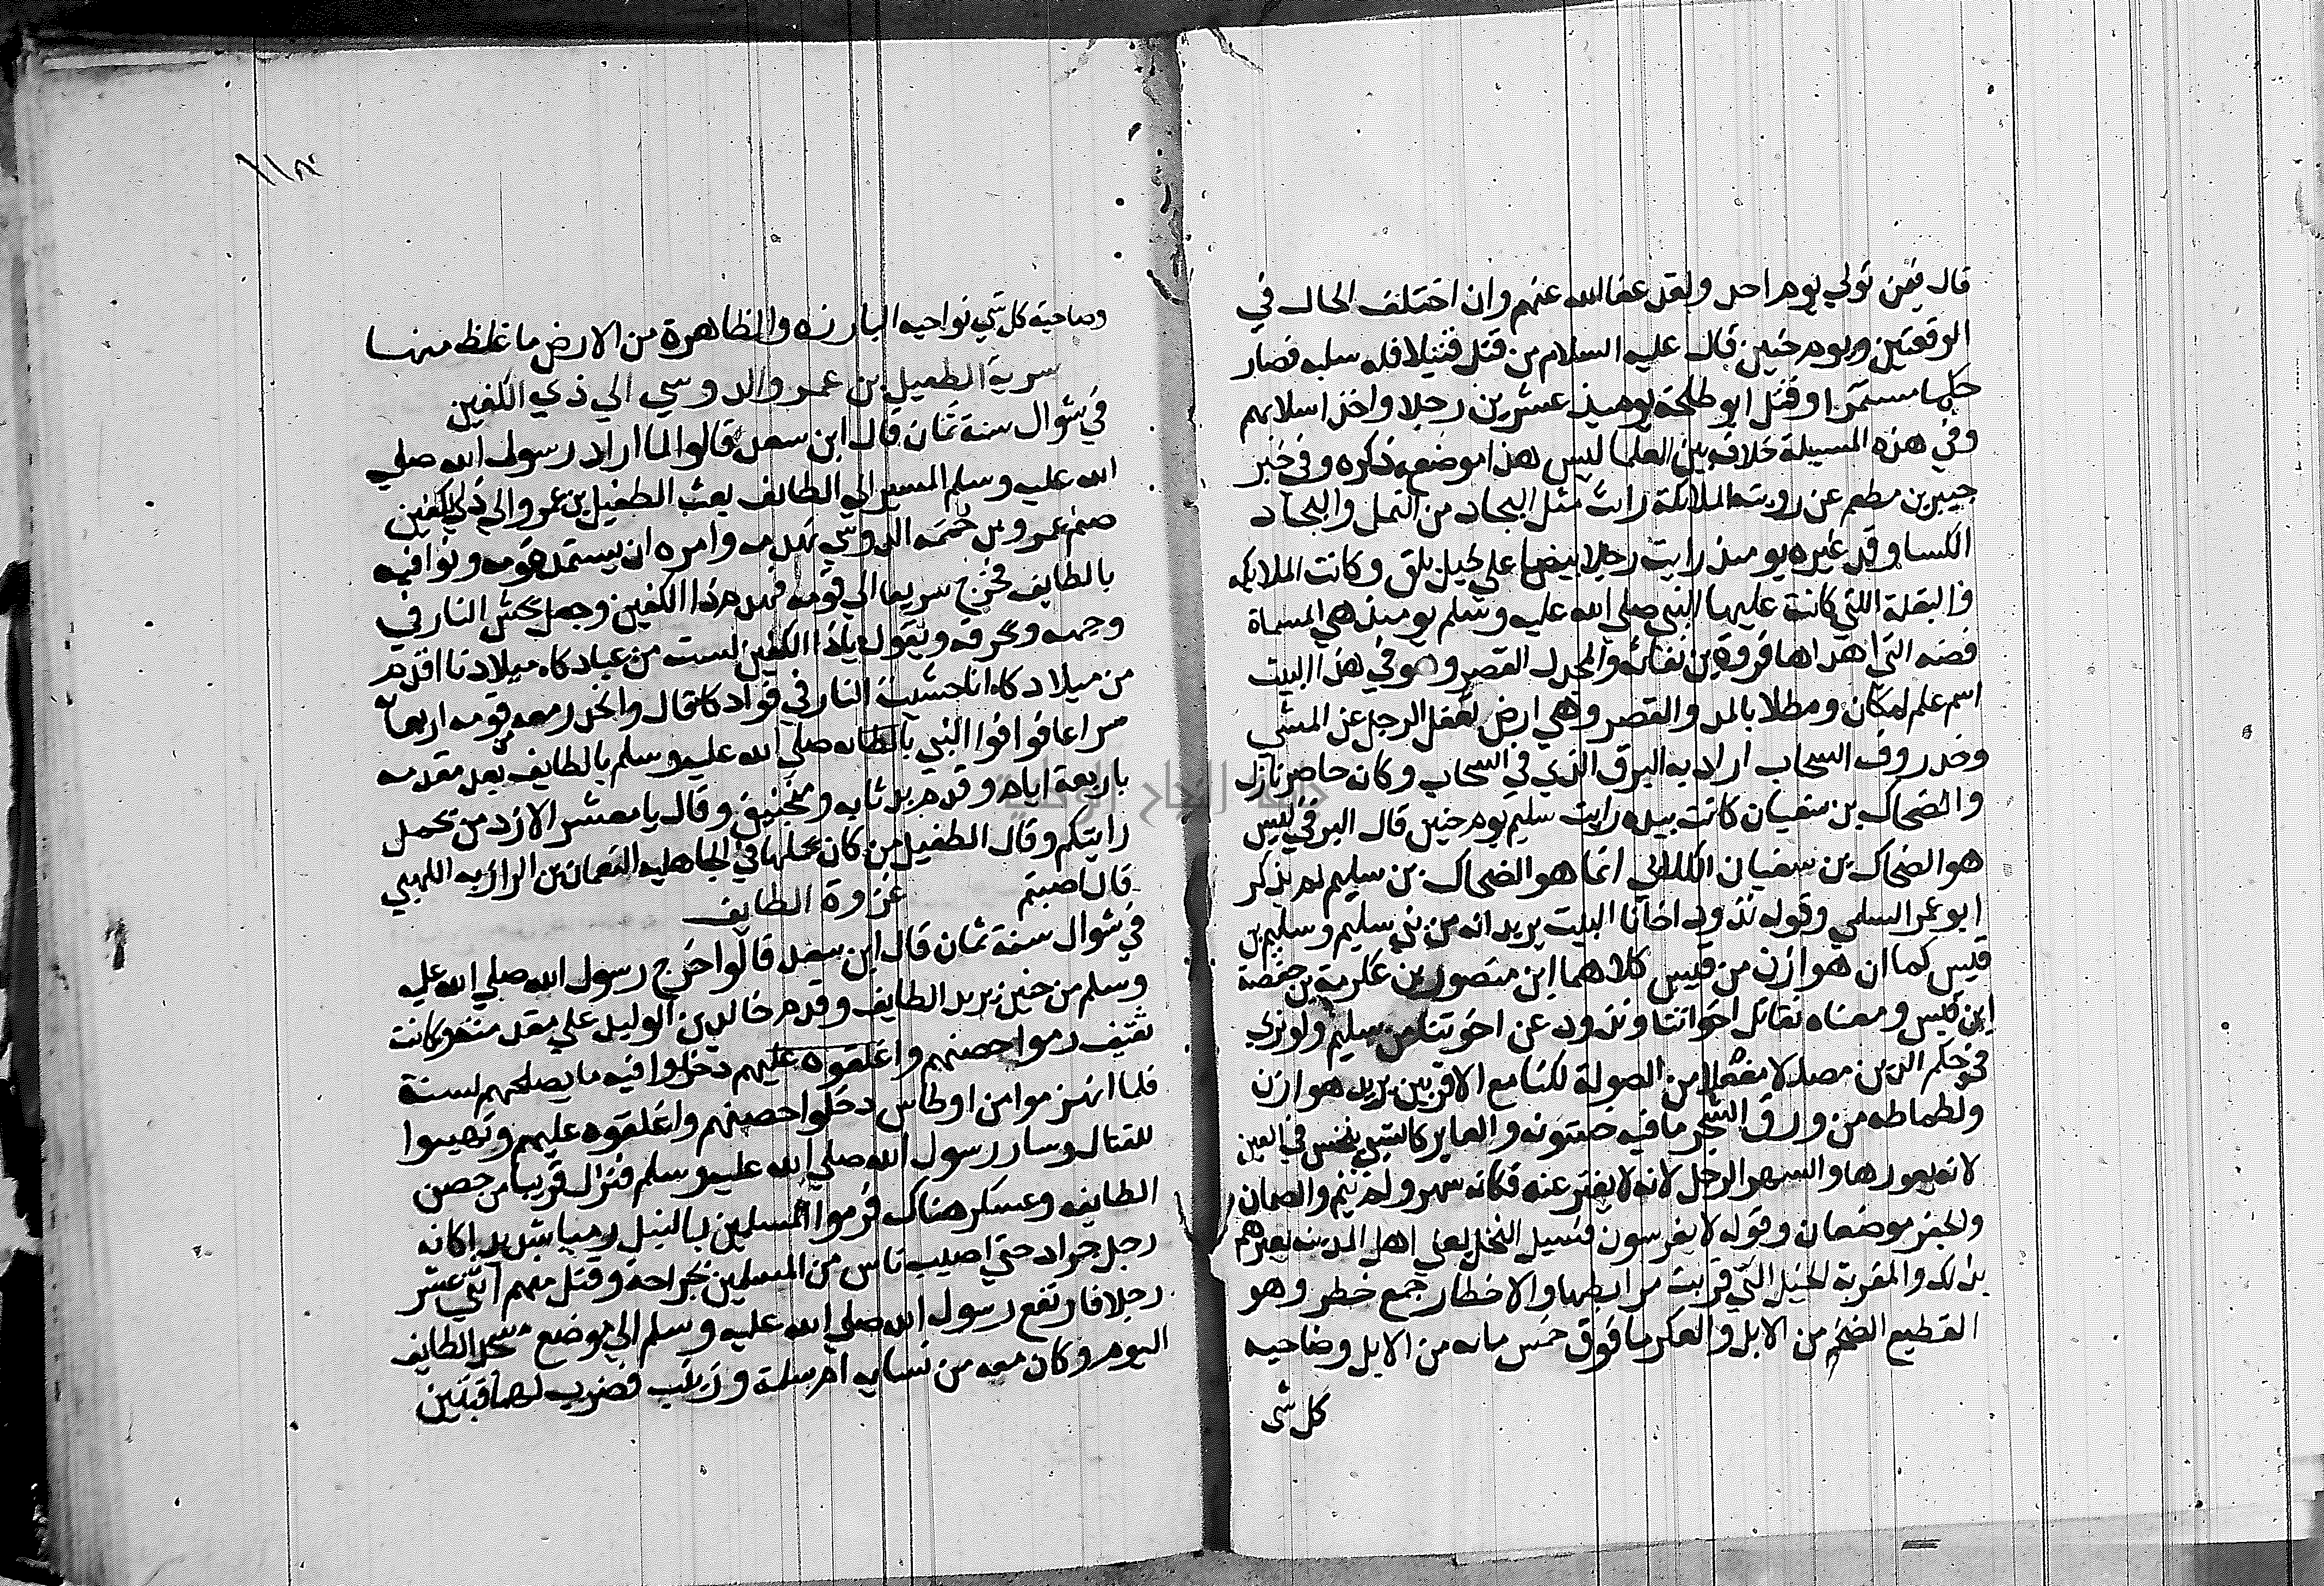 قال فيمن تولي يوم احد ولقد عفا الله عنهم وان اختلف الحال في
الوقعتين ويوم حنين قال عليه السلام من قتل قتيلا فله سلبه فصار
حكما مستمرا وقتل ابو طلحة يوميذ عشرين رجلا واخذ اسلابهم
وفي هذه المسيلة خلاف بين العلما ليس هذا موضع ذكره وفي خبر
جبير بن مطعم عن رويته الملايكة رايت مثل البجاد من النمل والبجاد
الكسا وقد غيره يوميذ رايت رجالا بيضا علي خيل بلق وكانت الملايكه
والبغلة اللتي كانت عليها النبي صلي الله عليه وسلم يوميذ هي المسماة
فضه التي اهداها فروة بن نفاثه والمجدل القصر وهو في هذا البيت
اسم علم لمكان ومطلا بالمد والقصر وهي ارض تعقل الرجل عن المشي
وخدروف السحاب اراد به البرق الذي في السحاب وكان حاصر نازل
والضحاك بن سفيان كانت بيده رايت سليم يوم حنين قال البرقي ليس
هو الضحاك بن سفيان الكلابي انما هو الضحاك بن سليم لم يذكر
ابو عمر السلمي وقوله نذود اخانا البيت يريد انه من بني سليم وسليم بن
قيس كما ان هوازن من قيس كلاهما ابن منصور بن عكرمة بن خصفة
ابن قيس ومعناه نقاتل اخواننا ونذود عن اخوتنا من سليم ولو نري
في حكم الدين مصلا مفعلا من الصولة لكنا مع الاقربين يريد هوازن
ولطماطه من ورق الشجر ما فيه خشونه والعاير كالشي ينخس في العين
لانه يعورها والسهر الرجل لانه لا يفتر عنه فكانه سهر ولم ينم والصمان
والحفر موضعان وقوله لا يغرسون فسيل النخل يعني اهل المدينه يعيرهم
بذلك والمقربة الخيل التي قربت مرابطها والاخطار جمع خطر وهو
القطيع الضخم من الابل والعكر ما فوق خمس مايه من الابل وضاحيه
كل شي
١١٨
وضاحية كل شي نواحيه البارزه والظاهرة من الارض ما غلظ منها
سرية الطفيل بن عمرو الدوسي الي ذي الكفين
في شوال سنة ثمان قال ابن سعد قالوا لما اراد رسول الله صلي
الله عليه وسلم المسير الي الطايف بعث الطفيل بن عمرو الي ذي الكفين
صنم عمرو بن حممه الدوسي يهدمه وامره ان يستمد قومه ويوافيه
بالطايف فخرج سريعا الي قومه فهدم ذا الكفين وجعل يحش النار في
وجهه ويحرقه ويقول ياذا الكفين لست من عبادكا ميلادنا اقدم
من ميلادكا انا حشيت النار في فوادكا قال وانحدر معه قومه اربعماية
سراعا فوافوا النبي بالطايف صلي الله عليه وسلم بالطايف بعد مقدمه
باربعة ايام وقدم بدبابه ومنجنيق وقال يا معشر الازد من تحمل
رايتكم وقال الطفيل من كان يحملها في الجاهليه النعمان بن الرازيه اللهبي
قال اصبتم غزوة الطايف
في شوال سنة ثمان قال ابن سعد قالوا خرج رسول الله صلي الله عليه
وسلم من حنين يريد الطايف وقدم خالد بن الوليد علي مقدمته وكانت
ثقيف رموا حصنهم واغلقوه عليهم دخلوا فيه ما يصلحهم لسنة
فلما انهزموا من اوطاس دخلوا حصنهم واغلقوه عليهم وتهيوا
للقتال وسار رسول الله صلي الله عليه وسلم فنزل قريبا من حصن
الطايف وعسكر هناك فرموا المسلمين بالنبل رميا شديدا كانه
رجل جراد حتي اصيب ناس من المسلمين بجراحة وقتل منهم اثني عشر
رجلا فارتفع رسول الله صلي الله عليه وسلم الي موضع مسجد الطايف
اليوم وكان معه من نسايه ام سلمة وزينب فضرب لهما قبتين